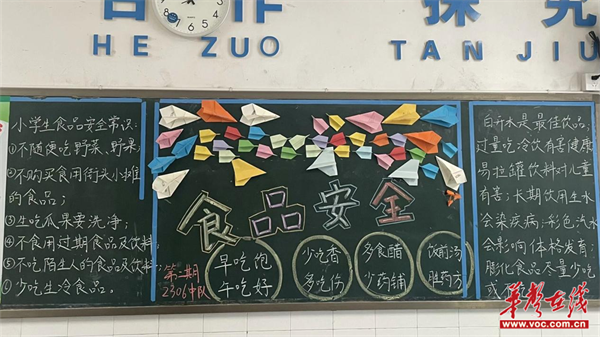 合作 探究
HE ZUO TAN JIU
小学生食品安全常识:
①不随便吃野菜、野果
②不购买食用街头小摊
的食品;
③生吃瓜果要洗净;
④不食用过期食品及饮料;
⑤不吃陌生人的食品及饮料;
⑥少吃生冷食品。
食品安全
第二期
2306中队
早吃饱
午吃好
少吃香
多吃伤
多食醋
少药铺
饭前汤
胜药方
白开水是最佳饮品,
过量吃冷饮有害健康
易拉罐饮料对儿童
有害;长期饮用生水
会染疾病;彩色汽水
会影响体格发育;
膨化食品尽量少吃
或
华声在线
www.voc.com.cn